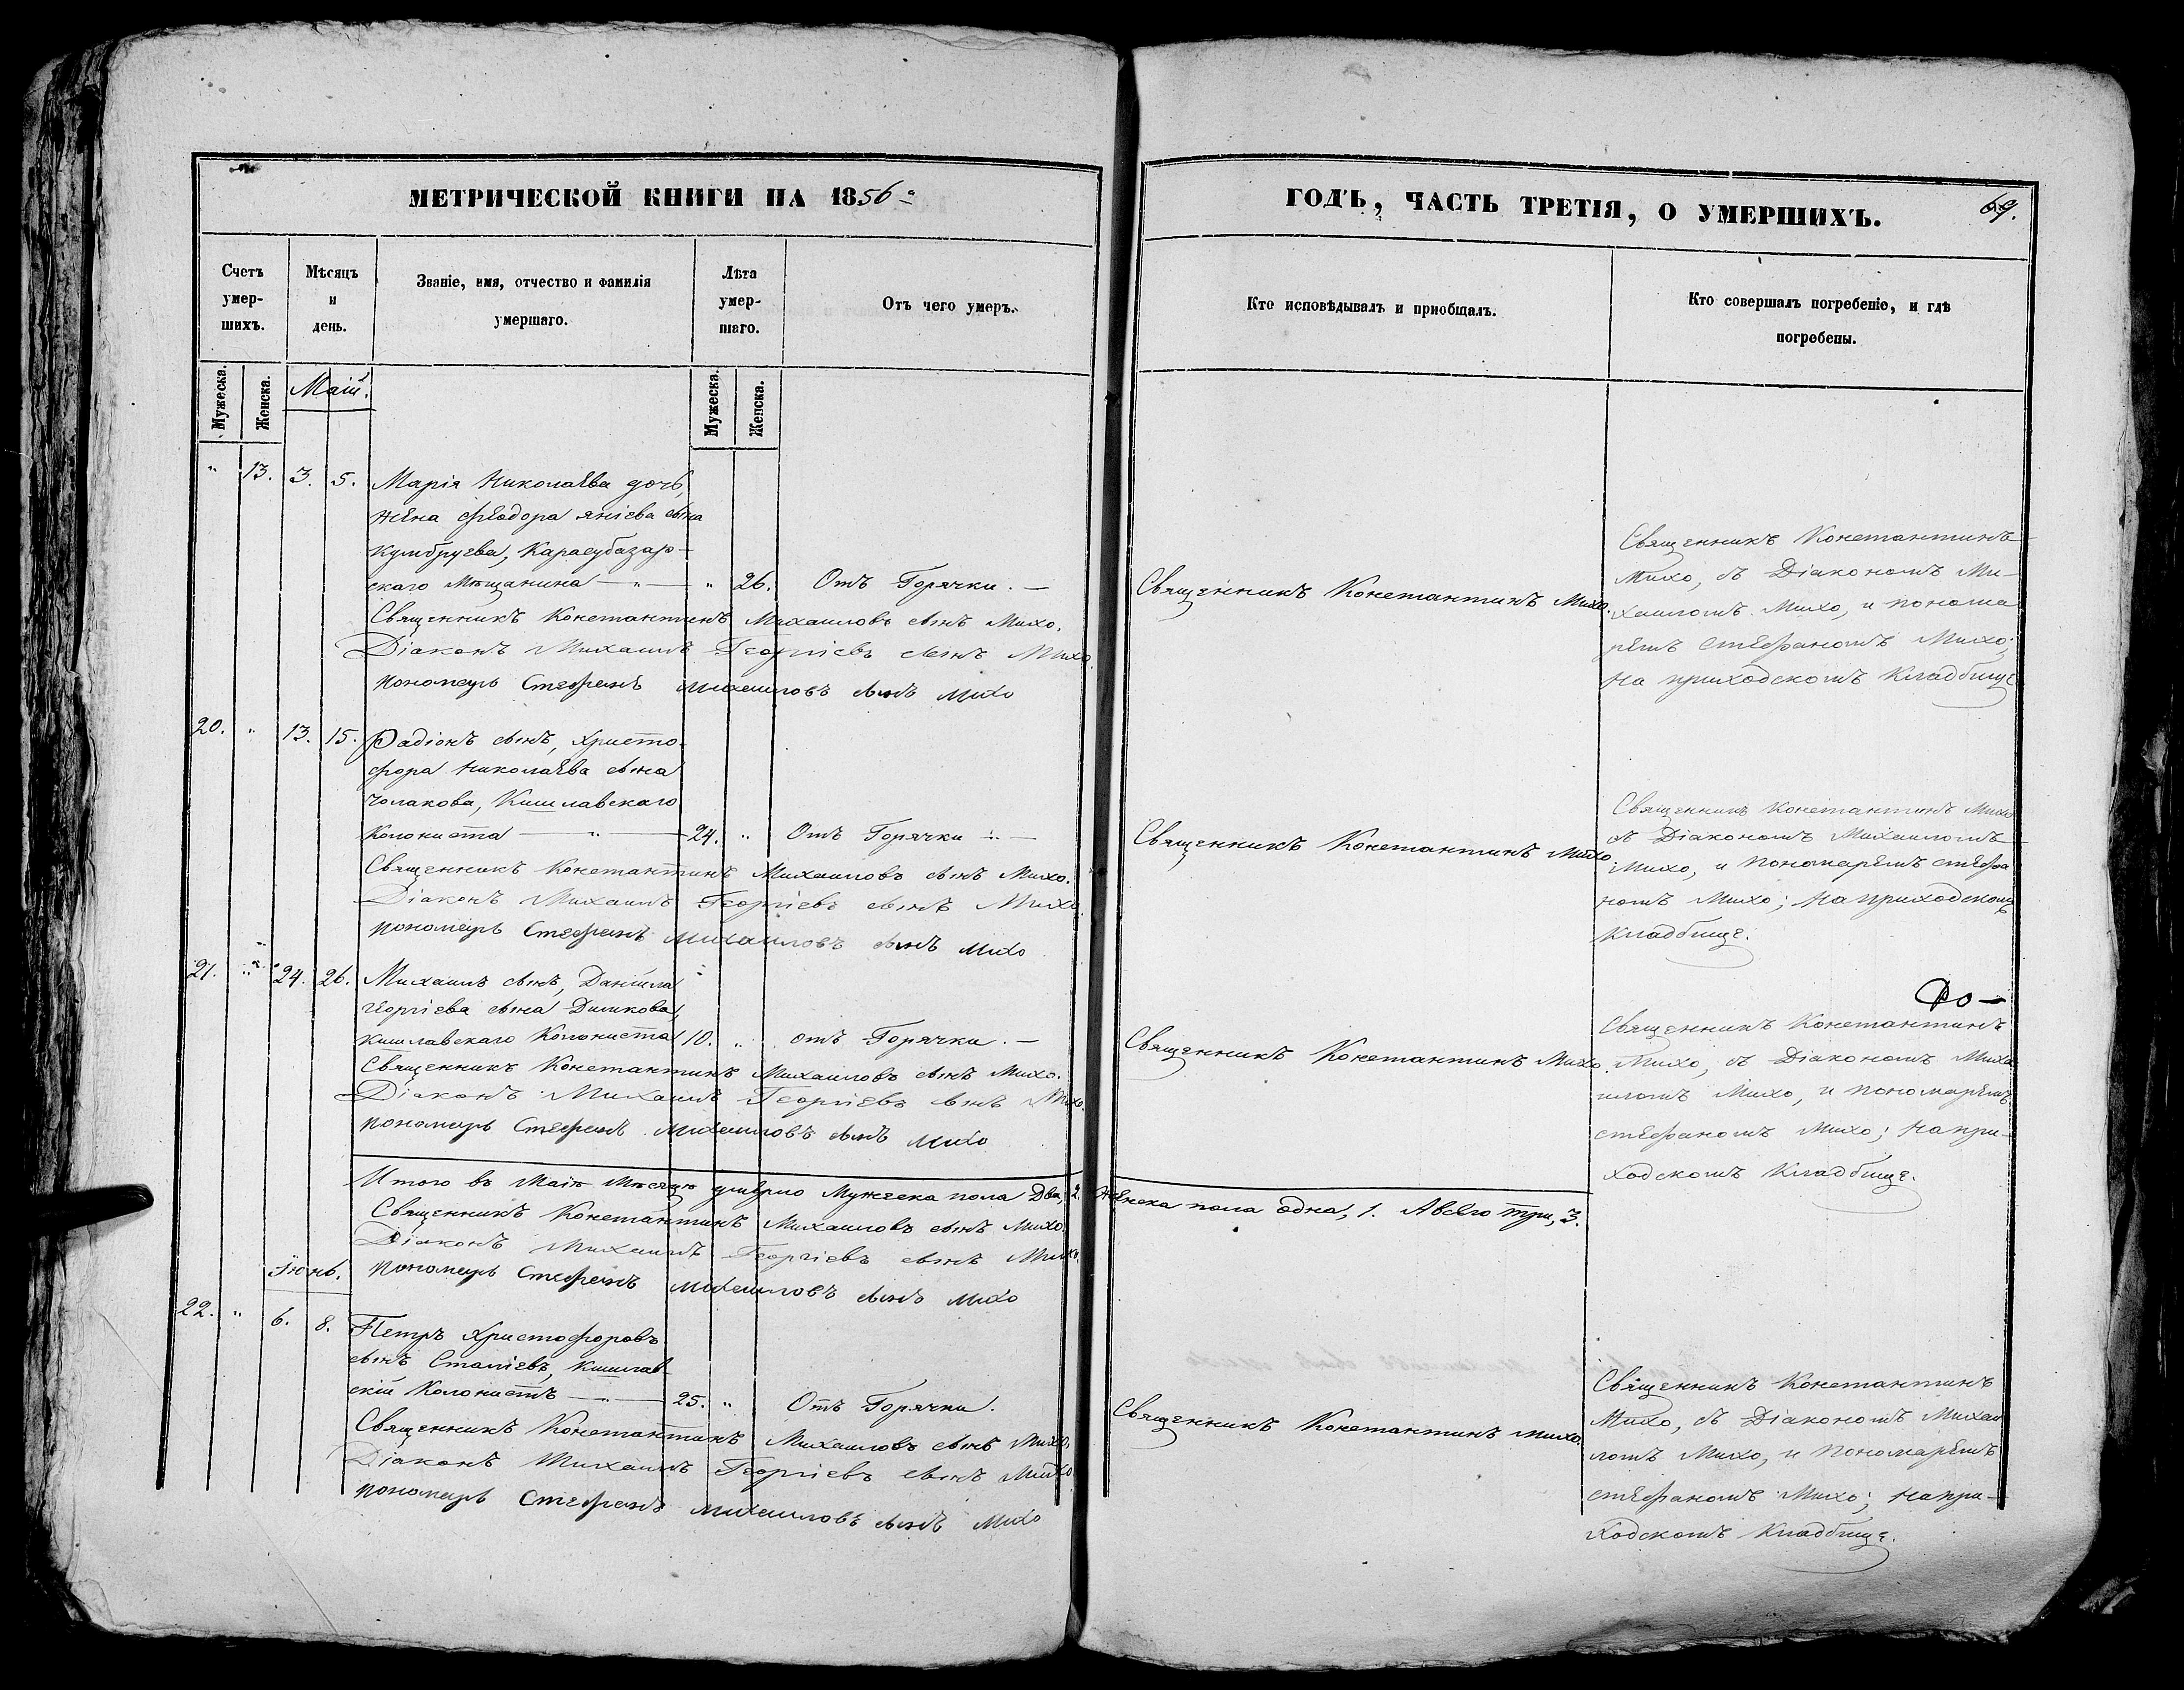 МЕТРИЧЕСКОЙ КНИГИ НА 1856й
Счетъ умер-шихъ.
Мѣсяцъ и день.
Званіе, имя, отчество и фамилія умершаго.
Лѣта умер-шаго.
Отъ чего умеръ.
Мужеска.
Женска.
Маій.
Мужеска.
Женска.
" 13. 3. 5. Марія Николаева дочь,
жена Феодора Яніева сына
Кумбруева, Карасубазар-
скаго Мѣщанина — " — " 26. Отъ Горячки. —
Священникъ Константинъ Михаиловъ сынъ Михо.
Діаконъ Михаилъ Георгіевъ сынъ Михо.
пономарь Стефанъ Михаиловъ сынъ Михо
20. " 13. 15. Радіонъ сынъ, Христо-
фора Николаева сына
Чолакова, Кишлавскаго
Колониста — " — 24. " Отъ Горячки —
Священникъ Константинъ Михаиловъ сынъ Михо.
Діаконъ Михаилъ Георгіевъ сынъ Михо
пономарь Стефанъ Михаиловъ сынъ Михо
21. " 24. 26. Михаилъ сынъ, Даніила
Георгіева сына Димкова,
Кишлавскаго Колониста 10. " отъ Горячки. —
Священникъ Константинъ Михаиловъ сынъ Михо.
Діаконъ Михаилъ Георгіевъ сынъ Михо.
пономарь Стефанъ Михаиловъ сынъ Михо
Итого въ Маіѣ Мѣсяцѣ умерло Мужеска пола Два, 2.
Священникъ Константинъ Михаиловъ сынъ Михо.
Діаконъ Михаилъ Георгіевъ сынъ Михо.
пономарь Стефанъ Михаиловъ сынъ Михо
Іюнь.
22. " 6. 8. Петръ Христофоровъ
сынъ Сталіевъ, Кишлав-
скій Колонистъ — " — 25. " Отъ Горячки.
Священникъ Константинъ Михаиловъ сынъ Михо.
Діаконъ Михаилъ Георгіевъ сынъ Михо
пономарь Стефанъ Михаиловъ сынъ Михо
ГОДЪ, ЧАСТЬ ТРЕТІЯ, О УМЕРШИХЪ.
69.
Кто исповѣдывалъ и пріобщалъ.
Кто совершалъ погребеніе, и гдѣ
погребены.
Священникъ Константинъ Михо.
Священникъ Константинъ
Михо, съ Діакономъ Ми-
хаиломъ Михо, и понома
ремъ Стефаномъ Михо;
на приходскомъ Кладбище
Священникъ Константинъ Михо.
Священникъ Константинъ Михо
съ Діакономъ Михаиломъ
Михо, и Пономаремъ Стефа
номъ Михо; на приходскомъ
Кладбище.
Священникъ Константинъ Михо.
Священникъ Константинъ
Михо, съ Діакономъ Михаи
иломъ Михо, и пономаремъ
Стефаномъ Михо; на при-
ходскомъ Кладбище.
Женска пола одна, 1. А всего три, 3.
Священникъ Константинъ Михо.
Священникъ Константинъ
Михо, съ Діакономъ Михаи
ломъ Михо, и Пономаремъ
Стефаномъ Михо; на при-
ходскомъ Кладбище.